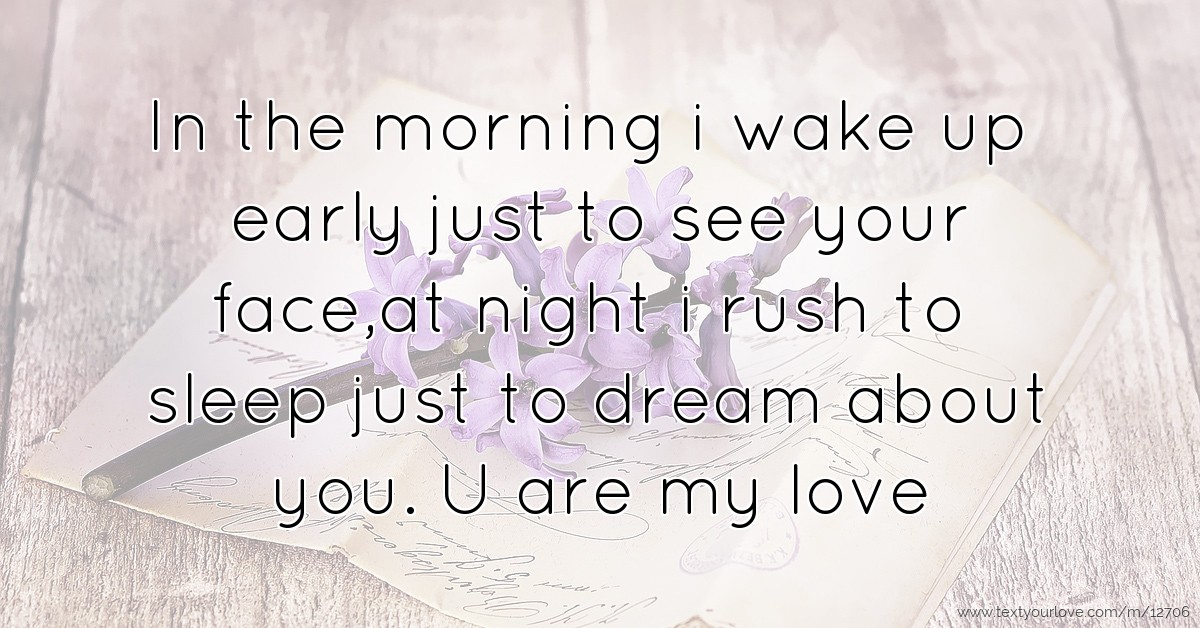 In the morning i wake up
early just to see your
face,at night i rush to
sleep just to dream about
you. U are my love
www.textyourlove.com/m/12706